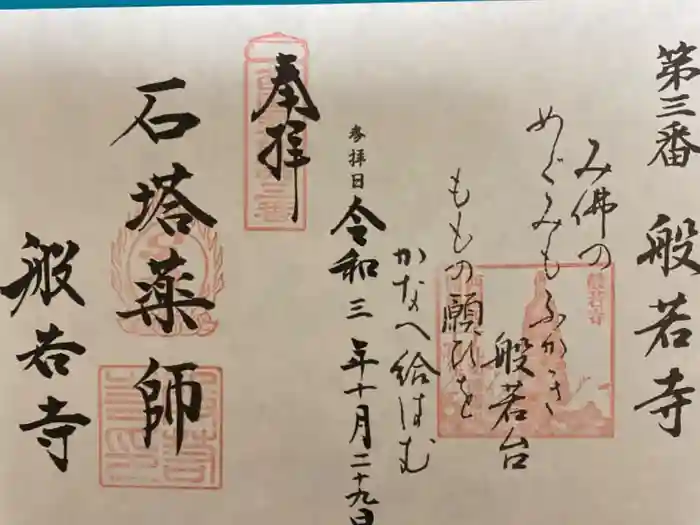 第三番 般若寺
み佛の
めぐみもふかき
般若台
ももの願ひを
かなへ給はむ
参拝日 令和三年十月二十九日
奉拝
石塔薬師
般若寺
般若寺